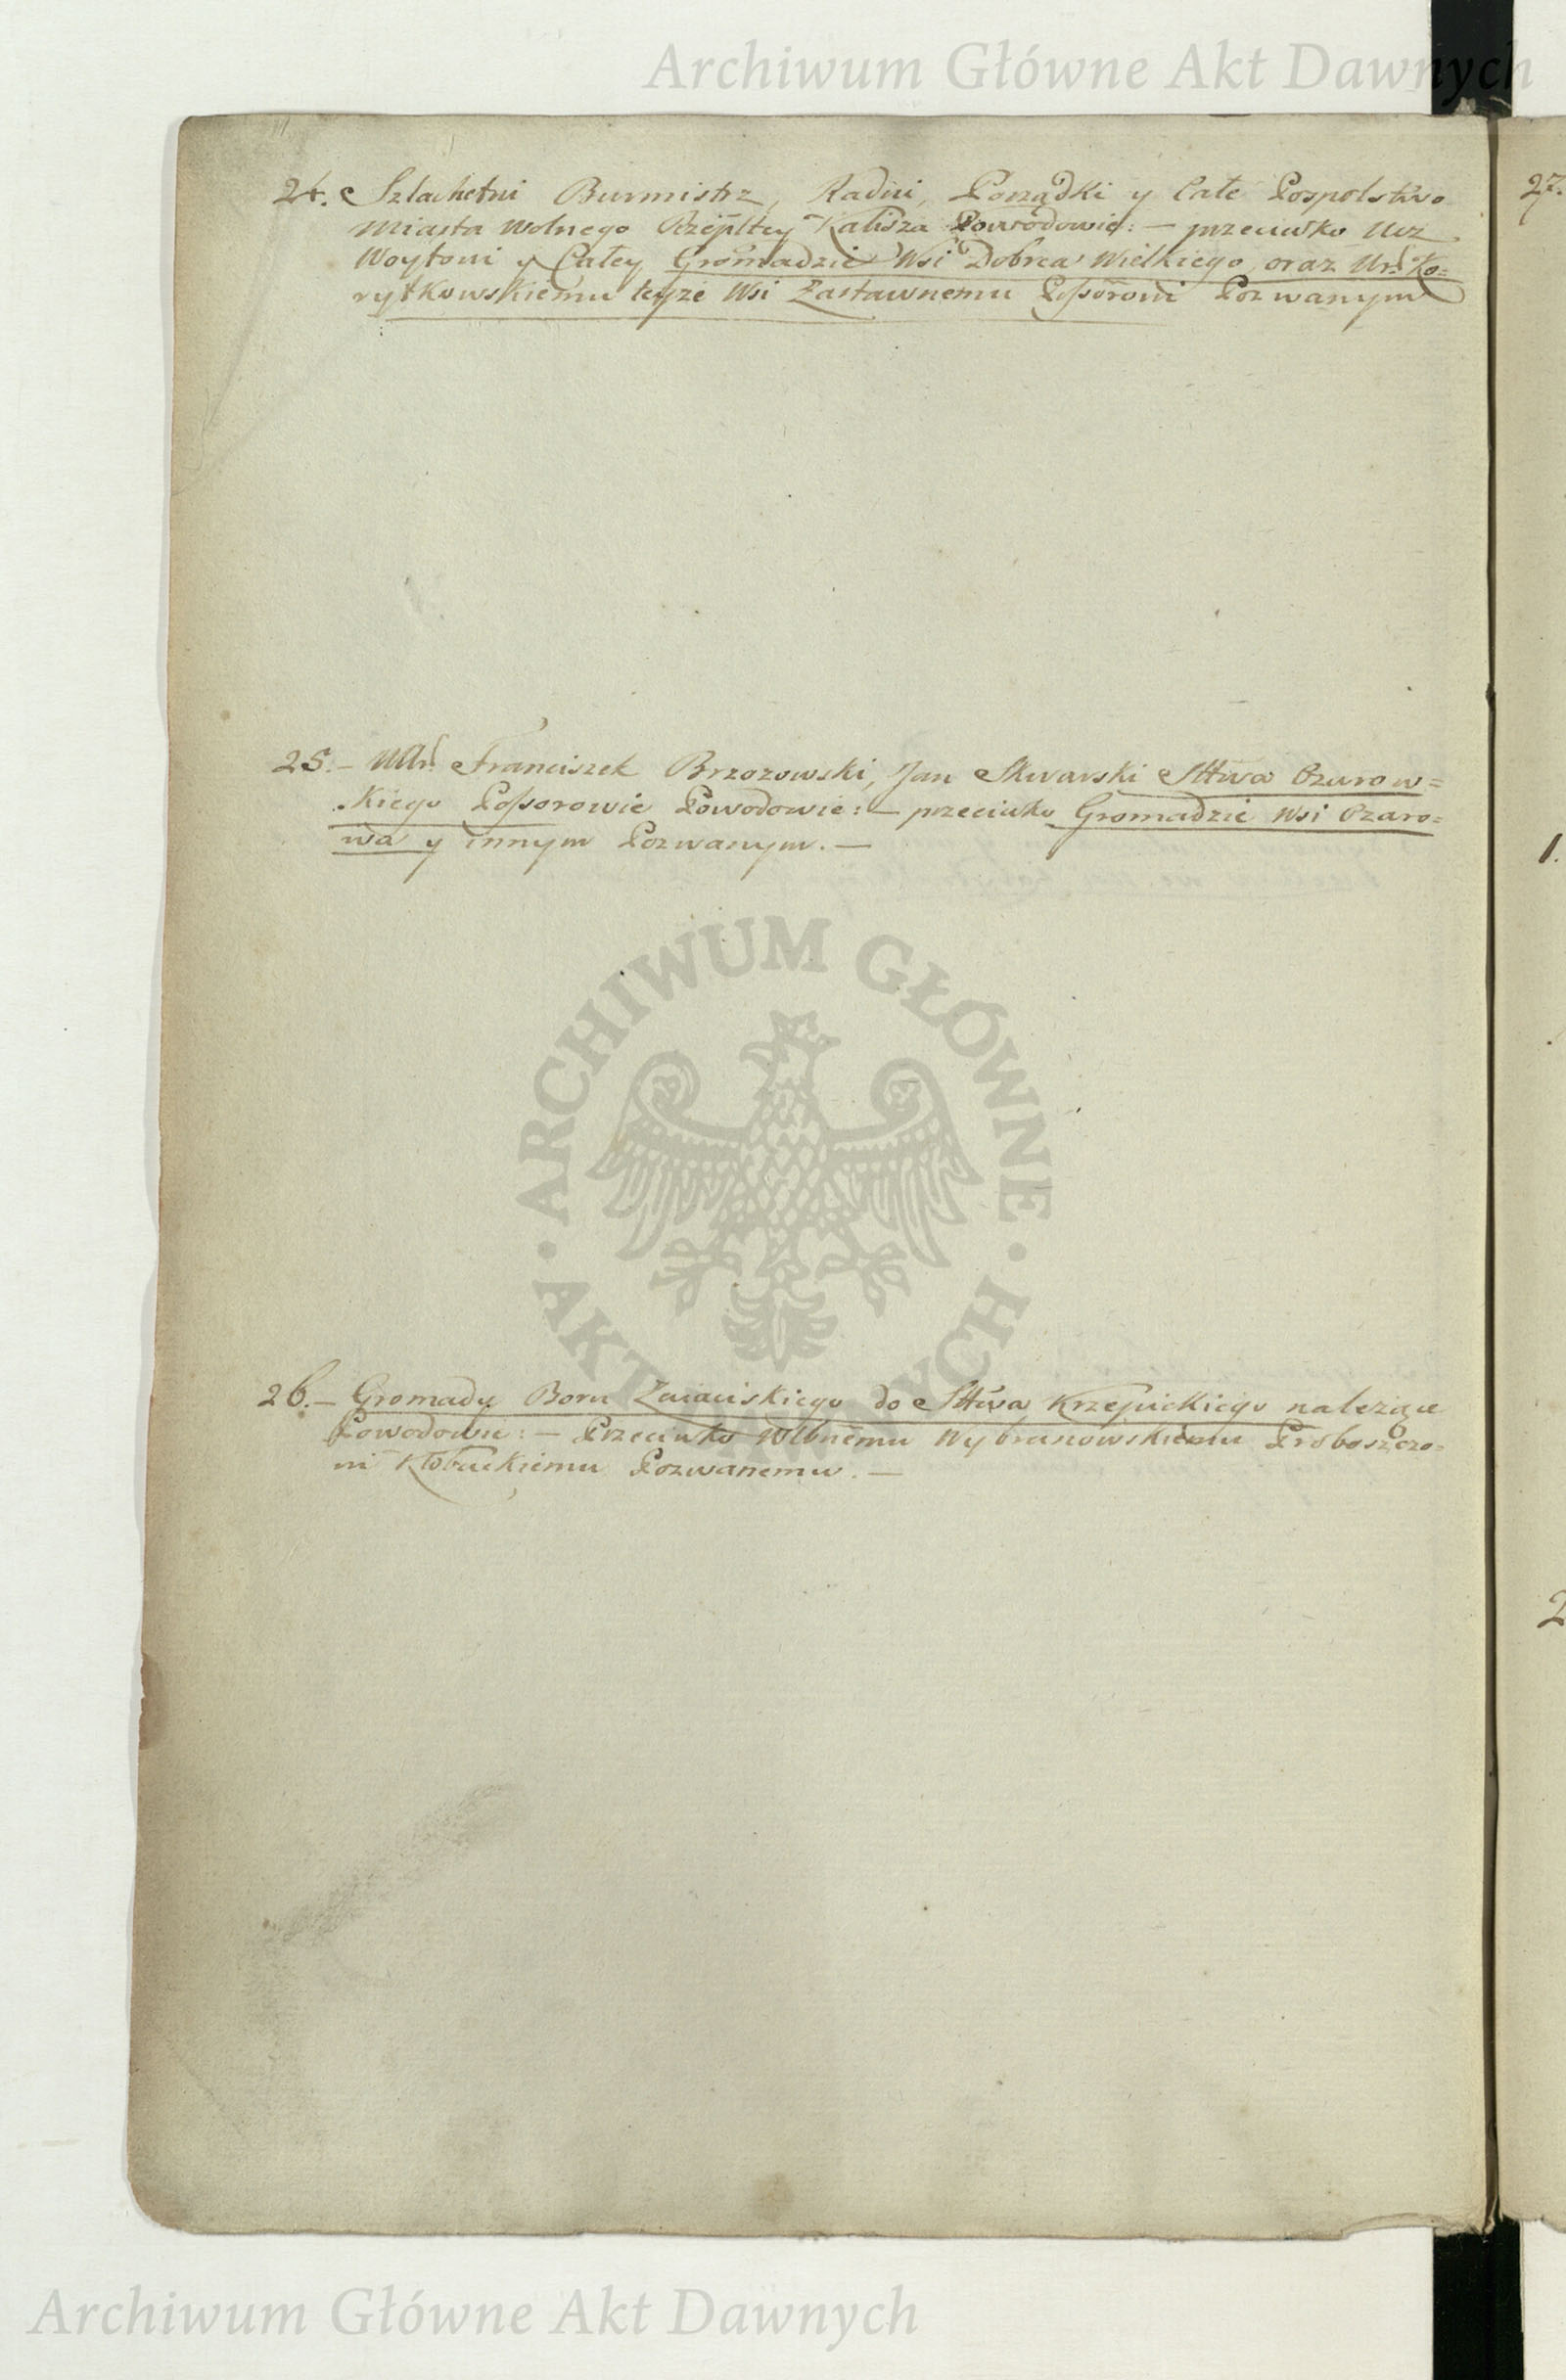 Archiwum Główne Akt Dawnych
24. Szlachetni Burmistrz, Radni, Porządki y Całe Pospolstwo
Miasta Wolnego Rzepltey Kalisza Powodowie: — przeciwko
Woytowi y Całey Gromadzie Wsi Dobrca Wielkiego, oraz Ur. Ko=
rytkowskiemu teyże Wsi Zastawnemu Possorowi Pozwanym
25. — Franciszek Brzozowski, Jan Skwarski Sttwa Ozarow=
skiego Possorowie Powodowie: — przeciwko Gromadzie Wsi Ozaro=
wa y innym Pozwanym. —
26. — Gromady Boru Zaiacińskiego do Sttwa Krzepickiego należące
Powodowie: — Przeciwko Wybranowskiemu Proboszczo=
wi Kłobuckiemu Pozwanemu. —
27.
1.
2
ARCHIWUM GŁÓWNE AKT DAWNYCH
Archiwum Główne Akt Dawnych